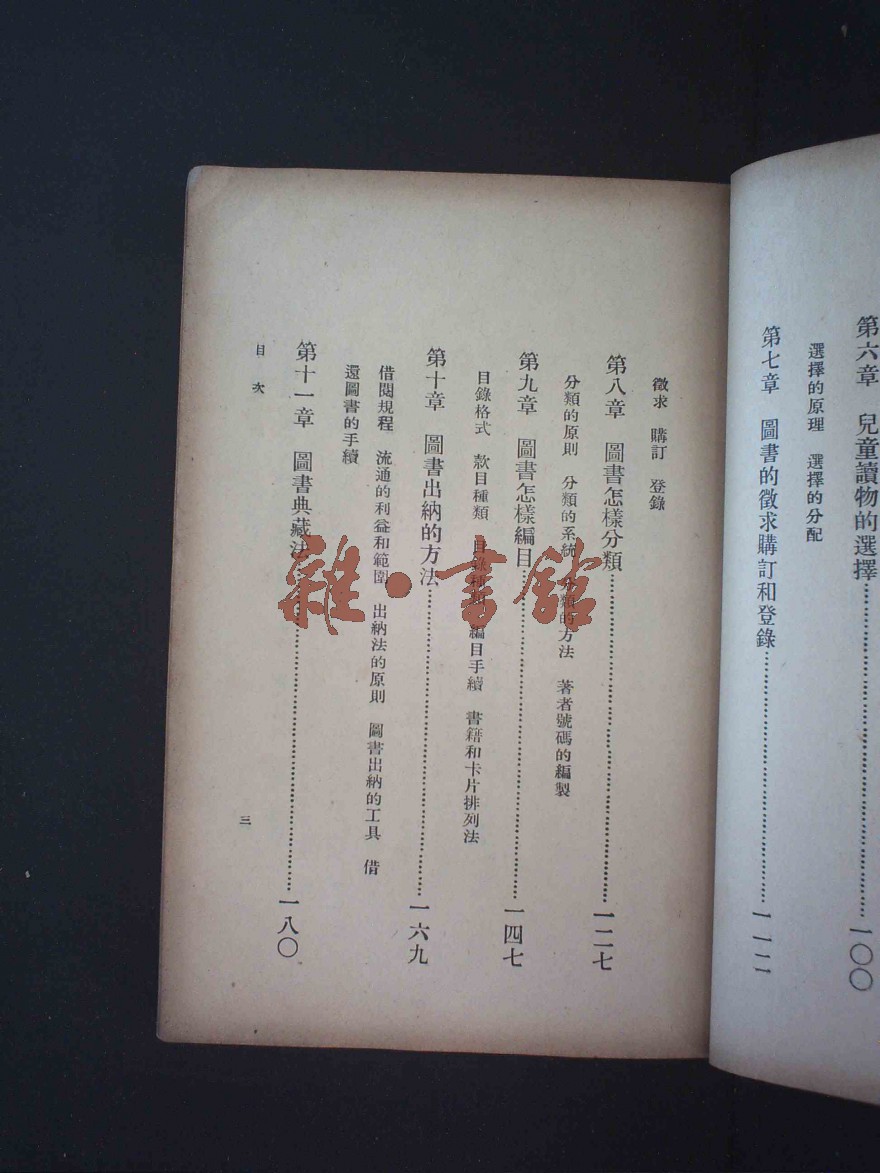 第六章　兒童讀物的選擇……一〇〇
選擇的原理　選擇的分配
第七章　圖書的徵求購訂和登錄……一一二
徵求　購訂　登錄
第八章　圖書怎樣分類……一二七
分類的原則　分類的系統　分類的方法　著者號碼的編製
第九章　圖書怎樣編目……一四七
目錄格式　款目種類　目錄種類　編目手續　書籍和卡片排列法
第十章　圖書出納的方法……一六九
借閱規程　流通的利益和範圍　出納法的原則　圖書出納的工具　借
還圖書的手續
第十一章　圖書典藏法……一八〇
目次
三
雜·書館